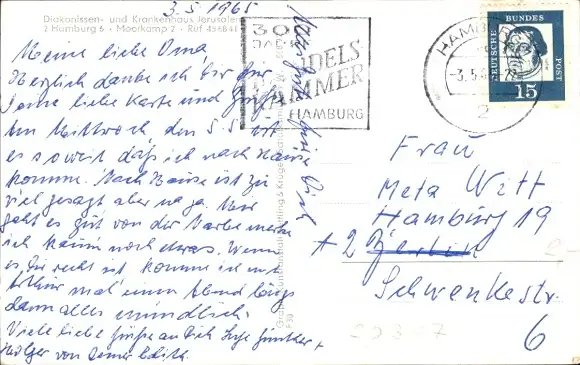 3.5.1965
Diakonissen- und Krankenhaus Jerusalem
2 Hamburg 6 · Moorkamp 2 · Ruf 456841
Meine liebe Oma!
Herzlich danke ich Dir für
Deine liebe Karte und Grüße.
Am Mittwoch den 5.5. ist
es soweit daß ich nach Hause
komme. Nach Hause ist zu
viel gesagt aber na ja. Mir
geht es gut von der Narbe merke
ich kaum noch etwas. Wenn
es Dir recht ist komme ich mit
mal einen Abend längs
dann alles mündlich.
Viele liebe Grüße an Dich Günther +
Holger von Deiner Edith
300
JAHRE
HANDELS
KAMMER
HAMBURG
HAMBURG
-3.5.6
2
DEUTSCHE BUNDES POST
15
Frau
Meta Witt
Hamburg 19
+ 2 Berlin
Schwenkestr.
6
F39